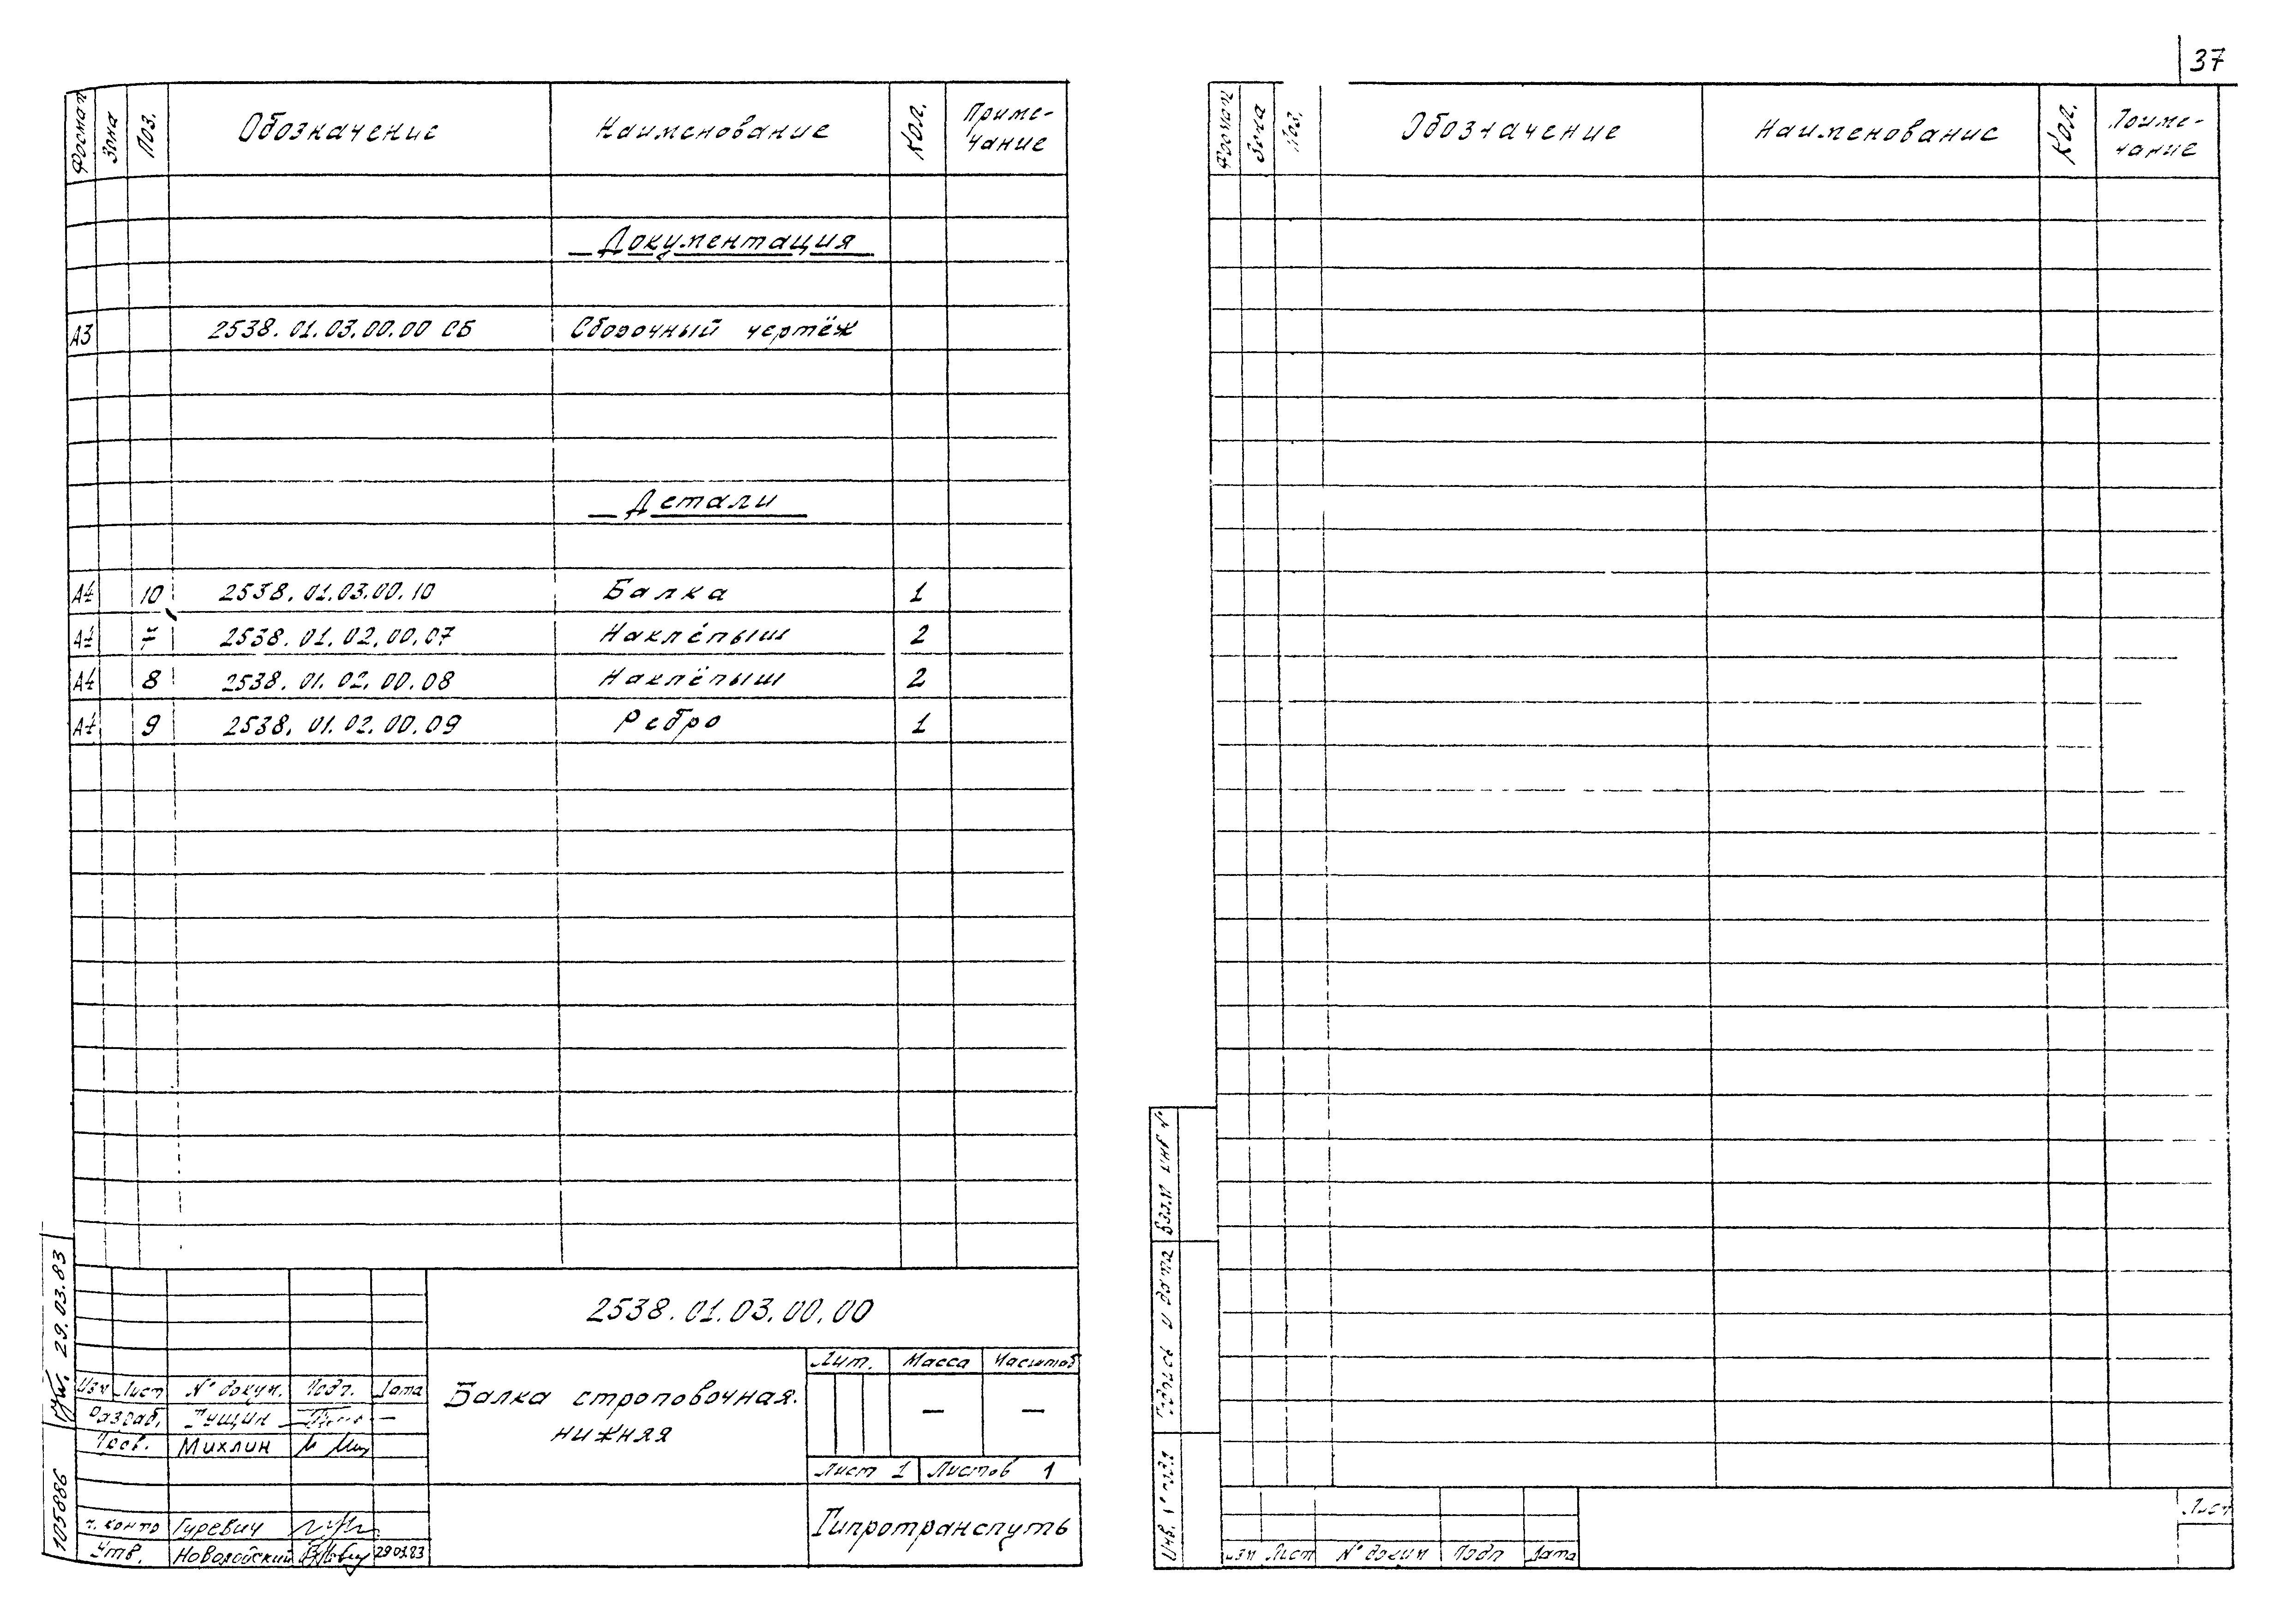 37
Формат Зона Поз. Обозначение Наименование Кол. Приме-
чание
Документация
А3 2538.01.03.00.00 СБ Сборочный чертёж
Детали
А4 10 2538.01.03.00.10 Балка 1
А4 7 2538.01.02.00.07 Наклёпыш 2
А4 8 2538.01.02.00.08 Наклёпыш 2
А4 9 2538.01.02.00.09 Ребро 1
2538.01.03.00.00
Изм Лист № докум. Подп. Дата
Разраб.
Пров. Михлин
Н. контр Гуревич
Утв. 29.03.83
Балка строповочная.
нижняя
Лит. Масса Масштаб
— —
Лист 1 Листов 1
Гипротранспуть
29.03.83
105886
Формат Зона Поз. Обозначение Наименование Кол. Приме-
чание
Взам инв №
Подпись и дата
Инв. № подл
Изм Лист № докум Подп Дата
Лист